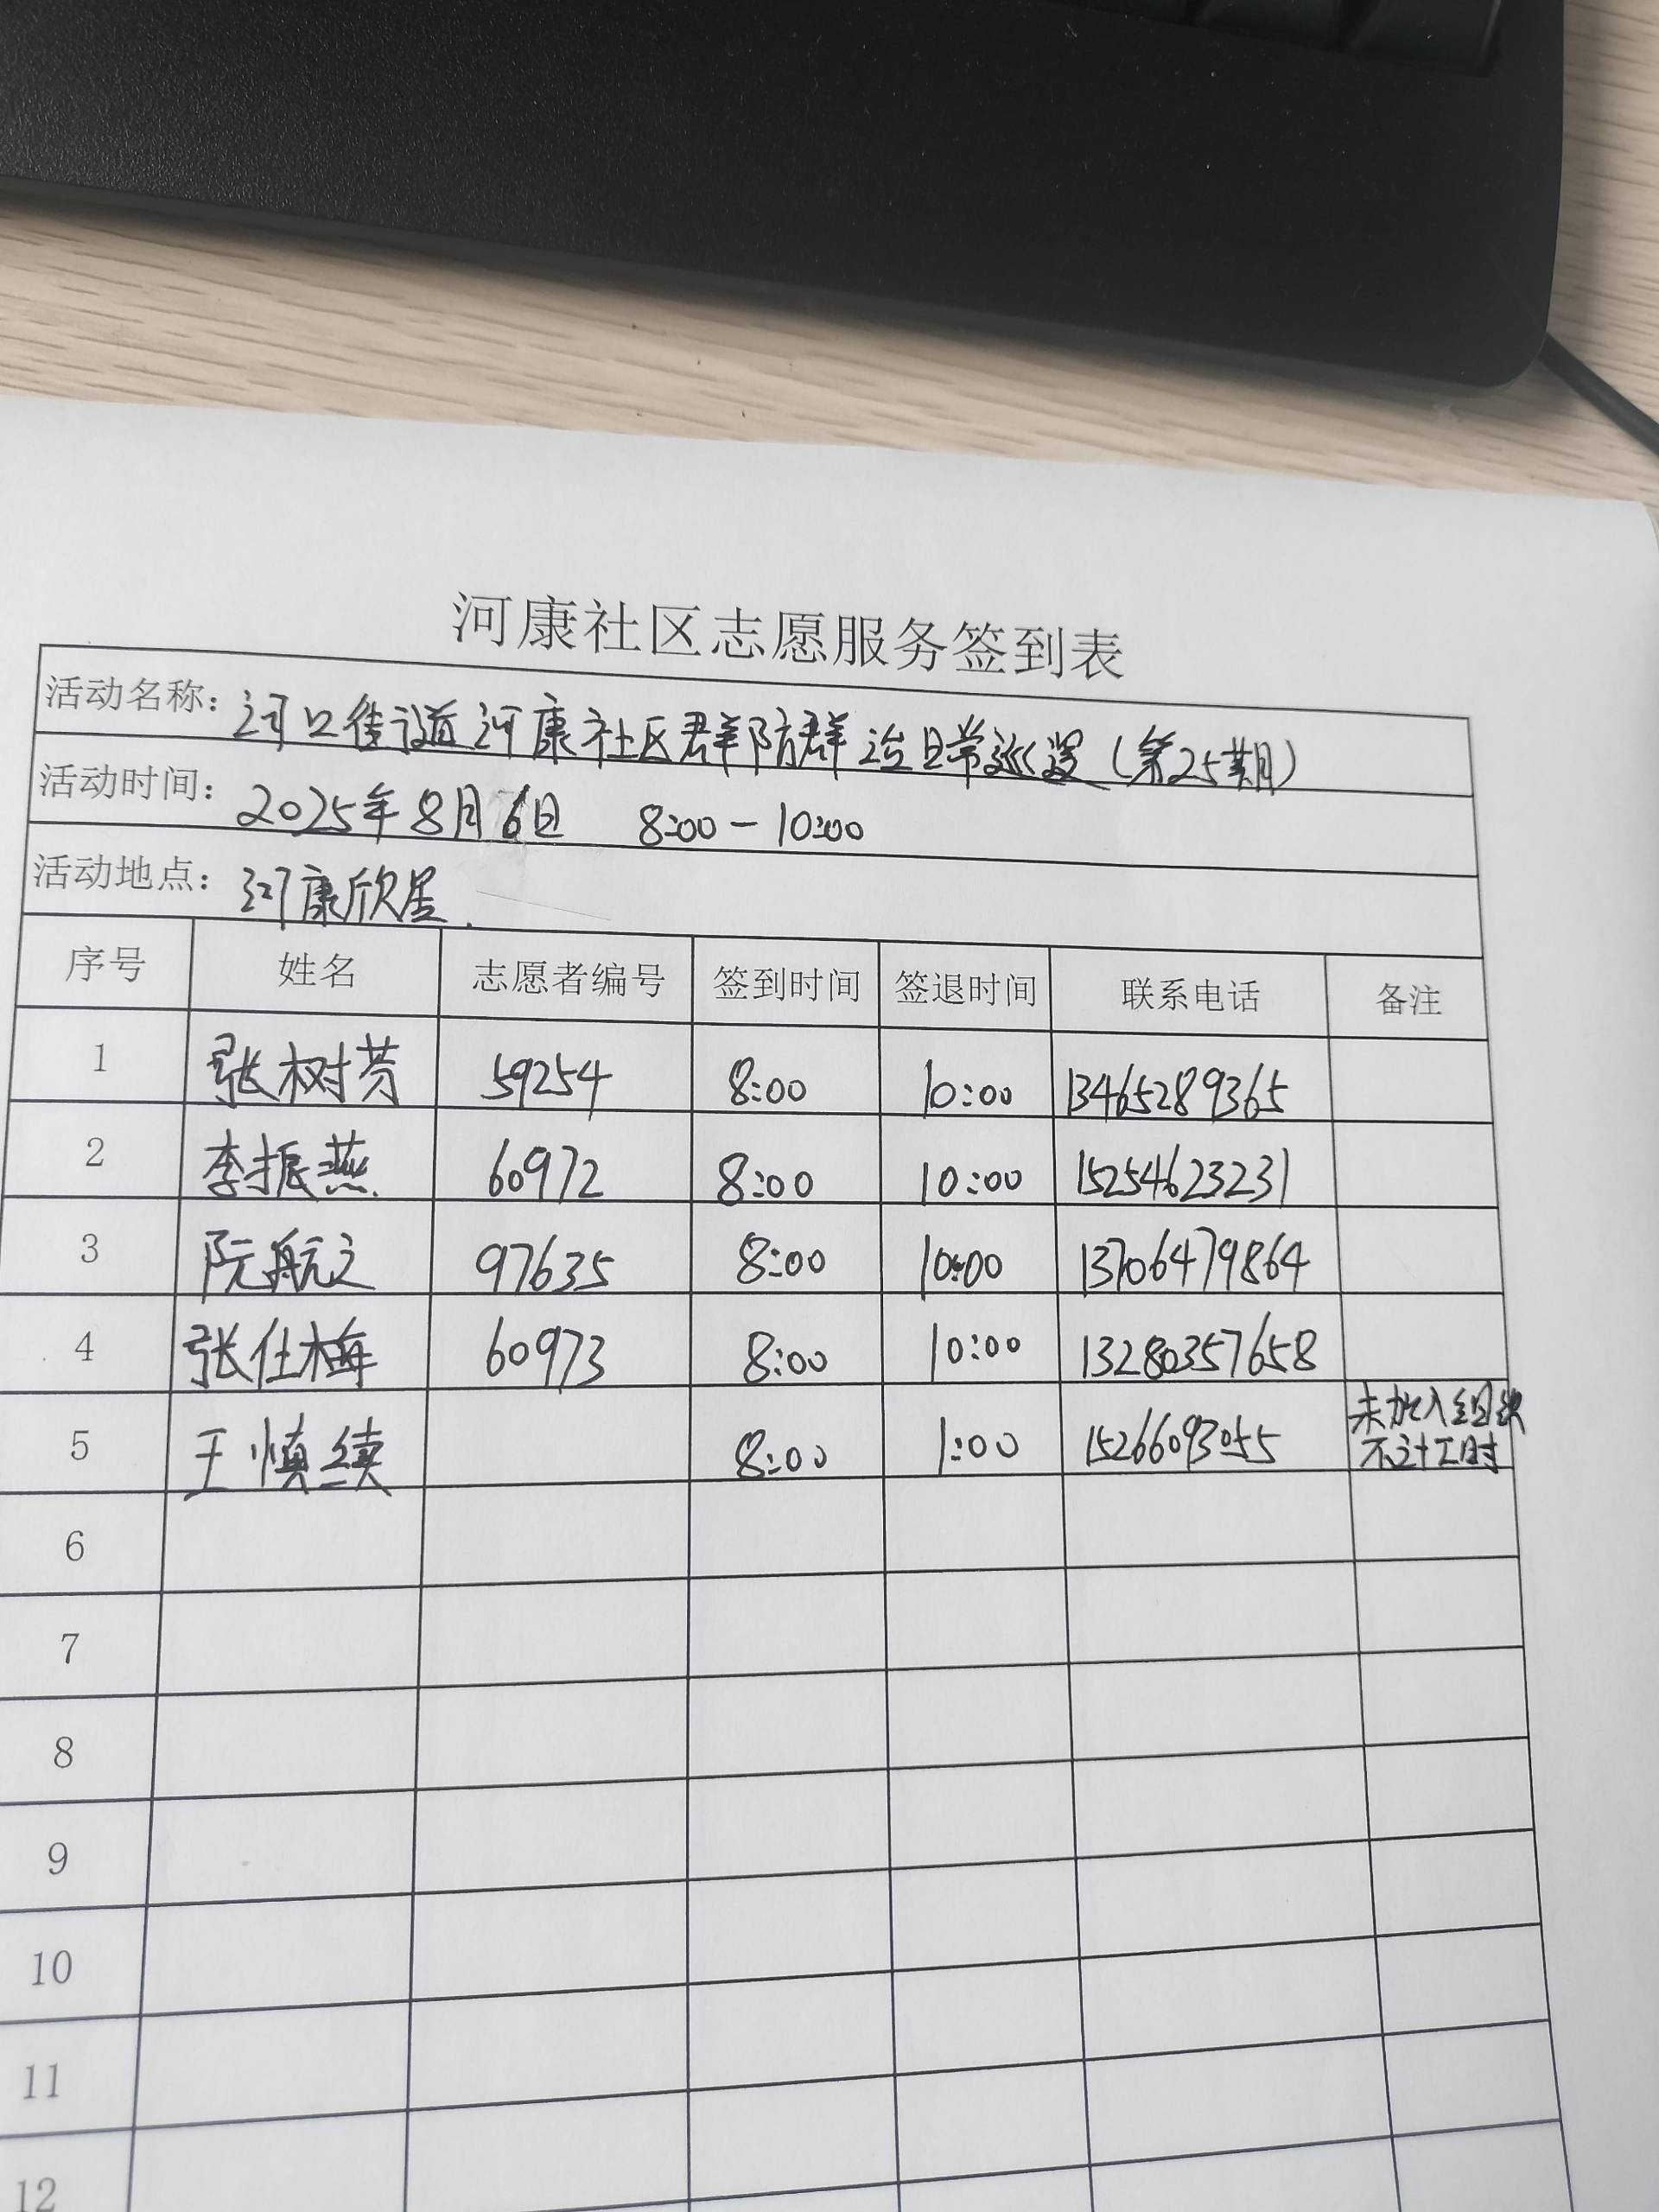 河康社区志愿服务签到表
活动名称: 河口街道河康社区群防群治日常巡逻(第25期)
活动时间: 2025年8月6日 8:00-10:00
活动地点: 河康欣居
序号 姓名 志愿者编号 签到时间 签退时间 联系电话 备注
1 张树芳 59254 8:00 10:00 13465289365
2 李振燕 60972 8:00 10:00 15254623231
3 阮航之 97635 8:00 10:00 13706479864
4 张仕梅 60973 8:00 10:00 13280357658
5 王慎续 8:00 1:00 15266093055 未加入组织
不计工时
6
7
8
9
10
11
12